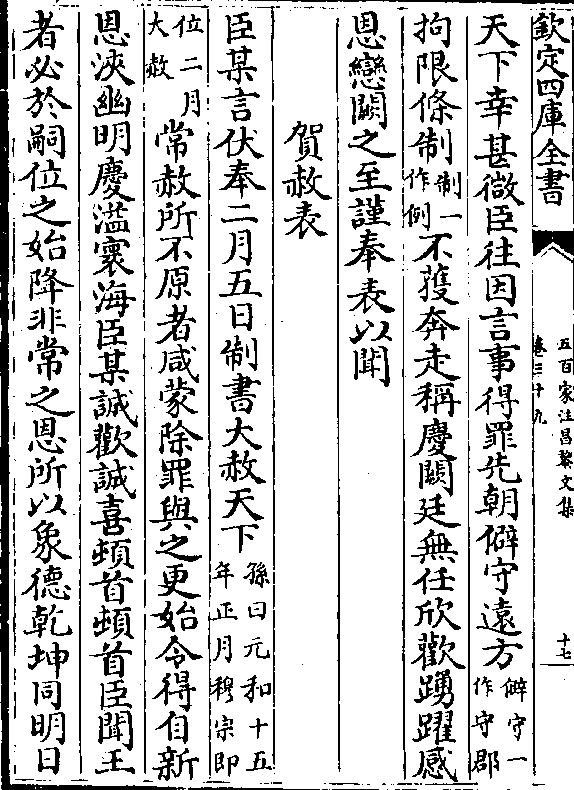 欽定四庫全書
五百家注昌黎文集
卷三十九
十七
天下幸甚微臣徃因言事得罪先朝僻守遠方僻守一作守郡
拘限條制制一作例不獲奔走稱慶闕廷無任欣歡踴躍感
恩戀闕之至謹奉表以聞
賀赦表
臣某言伏奉二月五日制書大赦天下孫曰元和十五年正月穆宗即
位二月大赦常赦所不原者咸蒙除罪與之更始令得自新
恩浹幽明慶溢寰海臣某誠歡誠喜頓首頓首臣聞王
者必於嗣位之始降非常之恩所以象德乾坤同明日